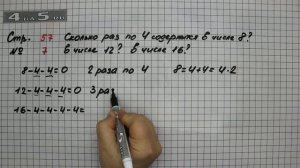 4 на 5
Стр. 57 Сколько раз по 4 содержится в числе 8?
№ 7 в числе 12? в числе 16?
8-4-4=0 2 раза по 4 8=4+4=4·2
12-4-4-4=0 3 раз
16-4-4-4-4=